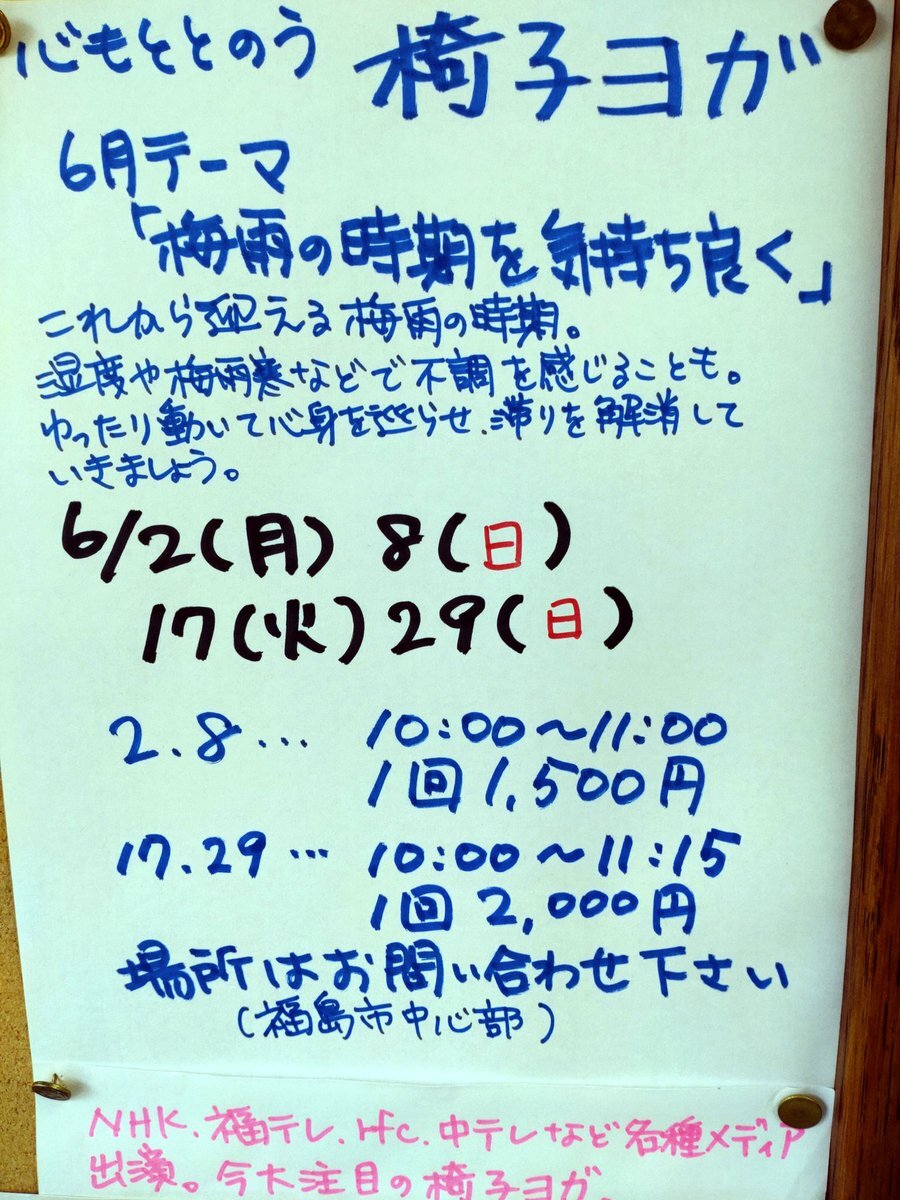 心もととのう 椅子ヨガ
6月テーマ
「梅雨の時期を気持ち良く」
これから迎える梅雨の時期。
湿度や梅雨寒などで不調を感じることも。
ゆったり動いて心身を巡らせ、滞りを解消して
いきましょう。
6/2(月) 8(日)
17(火) 29(日)
2.8… 10:00~11:00
1回 1,500円
17.29… 10:00~11:15
1回 2,000円
場所はお問い合わせ下さい
(福島市中心部)
NHK、福テレ、rfc、中テレなど各種メディア
出演。今大注目の椅子ヨガ。